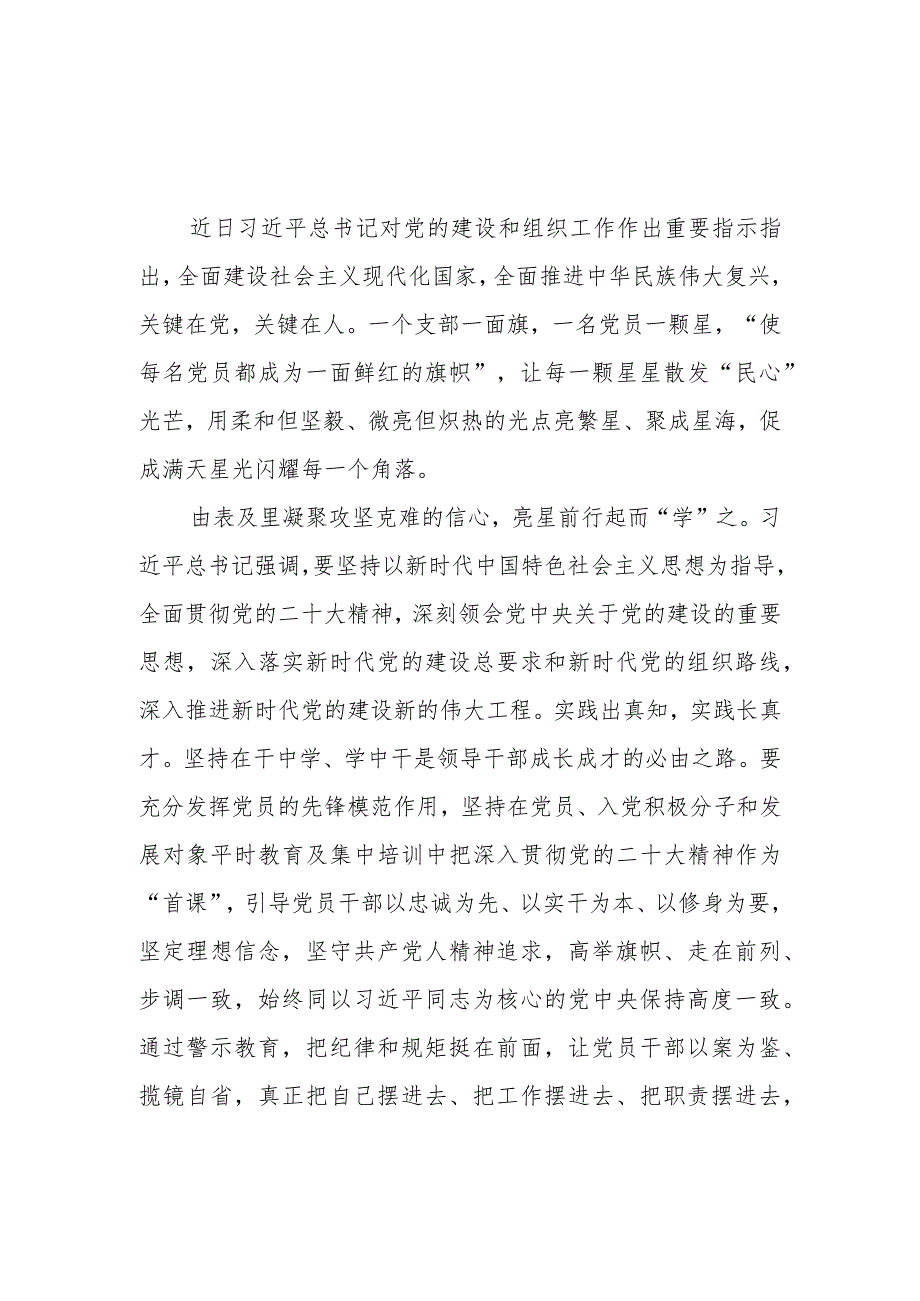 近日习近平总书记对党的建设和组织工作作出重要指示指
出，全面建设社会主义现代化国家，全面推进中华民族伟大复兴，
关键在党，关键在人。一个支部一面旗，一名党员一颗星，“使
每名党员都成为一面鲜红的旗帜”，让每一颗星星散发“民心”
光芒，用柔和但坚毅、微亮但炽热的光点亮繁星、聚成星海，促
成满天星光闪耀每一个角落。
由表及里凝聚攻坚克难的信心，亮星前行起而“学”之。习
近平总书记强调，要坚持以新时代中国特色社会主义思想为指导，
全面贯彻党的二十大精神，深刻领会党中央关于党的建设的重要
思想，深入落实新时代党的建设总要求和新时代党的组织路线，
深入推进新时代党的建设新的伟大工程。实践出真知，实践长真
才。坚持在干中学、学中干是领导干部成长成才的必由之路。要
充分发挥党员的先锋模范作用，坚持在党员、入党积极分子和发
展对象平时教育及集中培训中把深入贯彻党的二十大精神作为
“首课”，引导党员干部以忠诚为先、以实干为本、以修身为要，
坚定理想信念，坚守共产党人精神追求，高举旗帜、走在前列、
步调一致，始终同以习近平同志为核心的党中央保持高度一致。
通过警示教育，把纪律和规矩挺在前面，让党员干部以案为鉴、
揽镜自省，真正把自己摆进去、把工作摆进去、把职责摆进去，